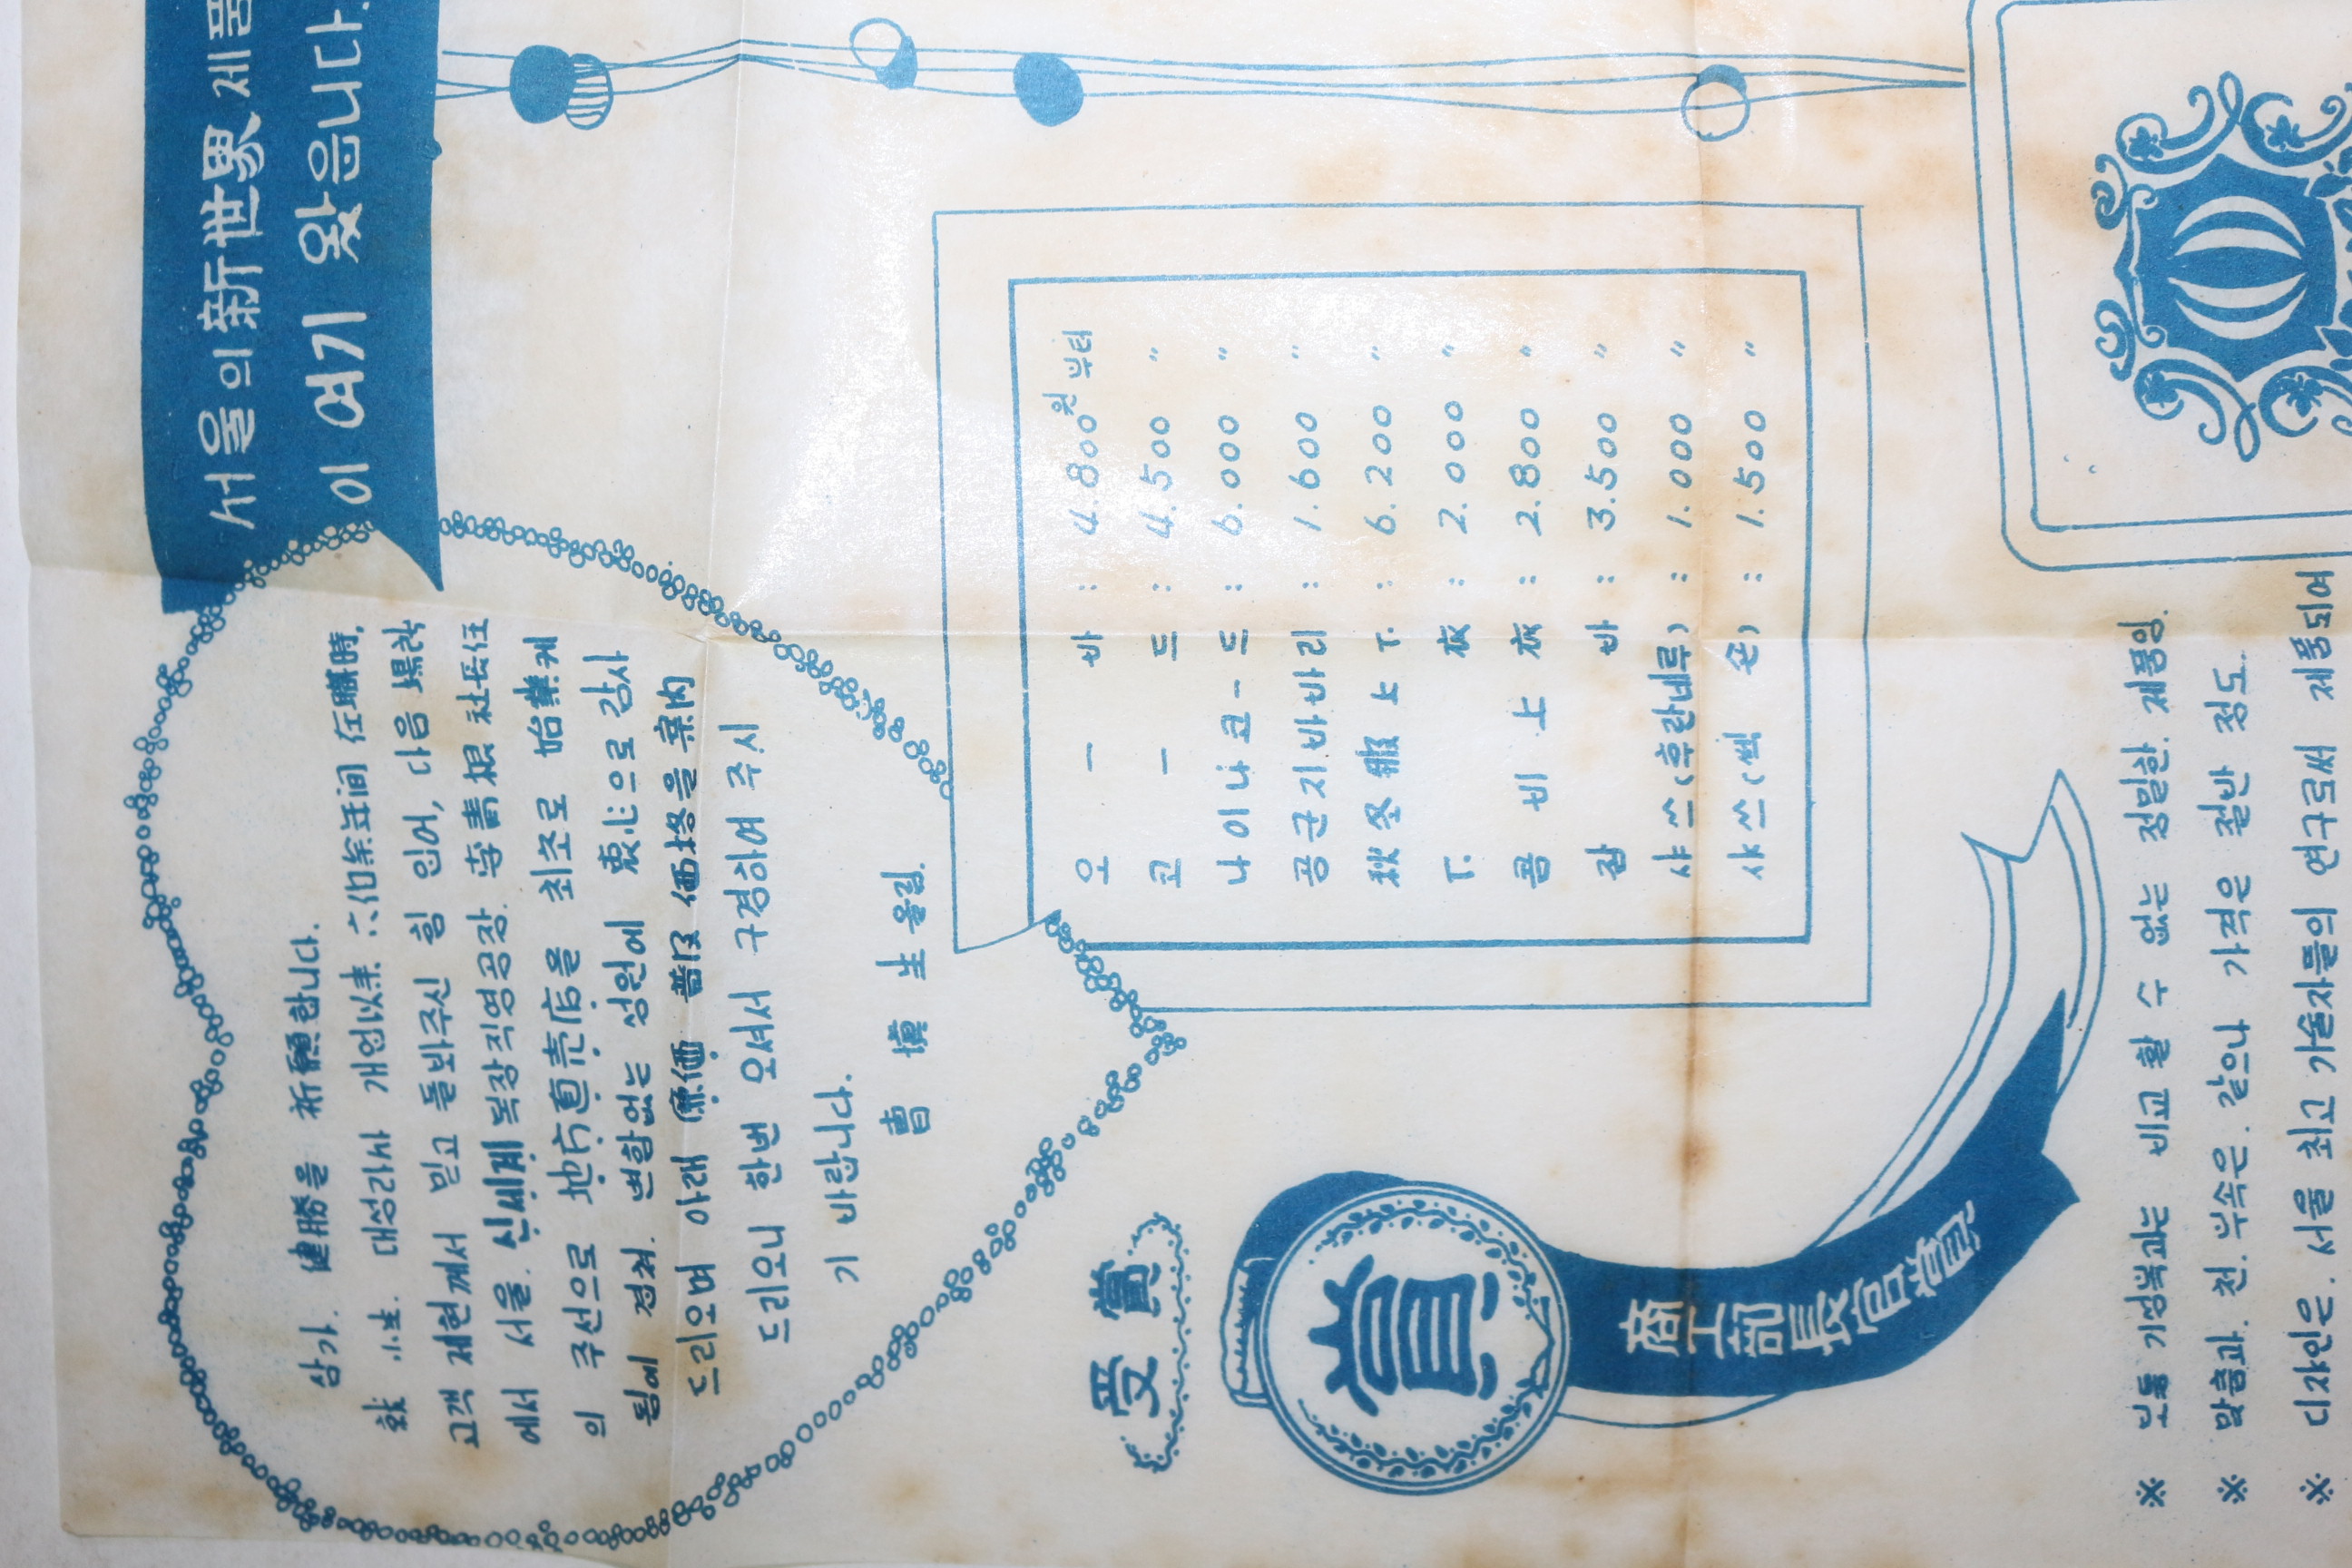 서울의 新世界 제품
이 여기 왔읍니다.
삼가. 健勝을 祈願합니다.
就 小生. 대성라사 개업以来 六個余年间 在職時,
고객 제현께서 믿고 돌봐주신 힘 입어, 다음
에서 서울. 신세계 복장직영공장. 李青根 社長任
의 주선으로 地方直売店을 최초로 始業케
됨에 걸쳐. 변함없는 성원에 衷心으로 감사
드리오며 아래 廉価 普及 価格을 案内
드리오니 한번 오셔서 구경하여 주시
기 바랍니다.
曹 塡 生 올림.
오 ー 바 : 4.800원 부터
코 ー 드 : 4.500 〃
나이나코ー드 : 6.000 〃
공군지바바리 : 1.600 〃
秋冬服上 T. : 6.200 〃
T. 衣 : 2.000 〃
콤 비 上 衣 : 2.800 〃
잠 바 : 3.500 〃
샤쓰(후란네루) : 1.000 〃
샤쓰(쎅 숀) : 1.500 〃
受賞
賞
商工部長官賞
※ 보통 기성복과는 비교 할 수 없는 정밀한. 제품임.
※ 맞춤과. 천. 부속은. 같으나 가격은 절반 정도.
※ 디자인은. 서울 최고 기술자들의 연구로써 제품되여